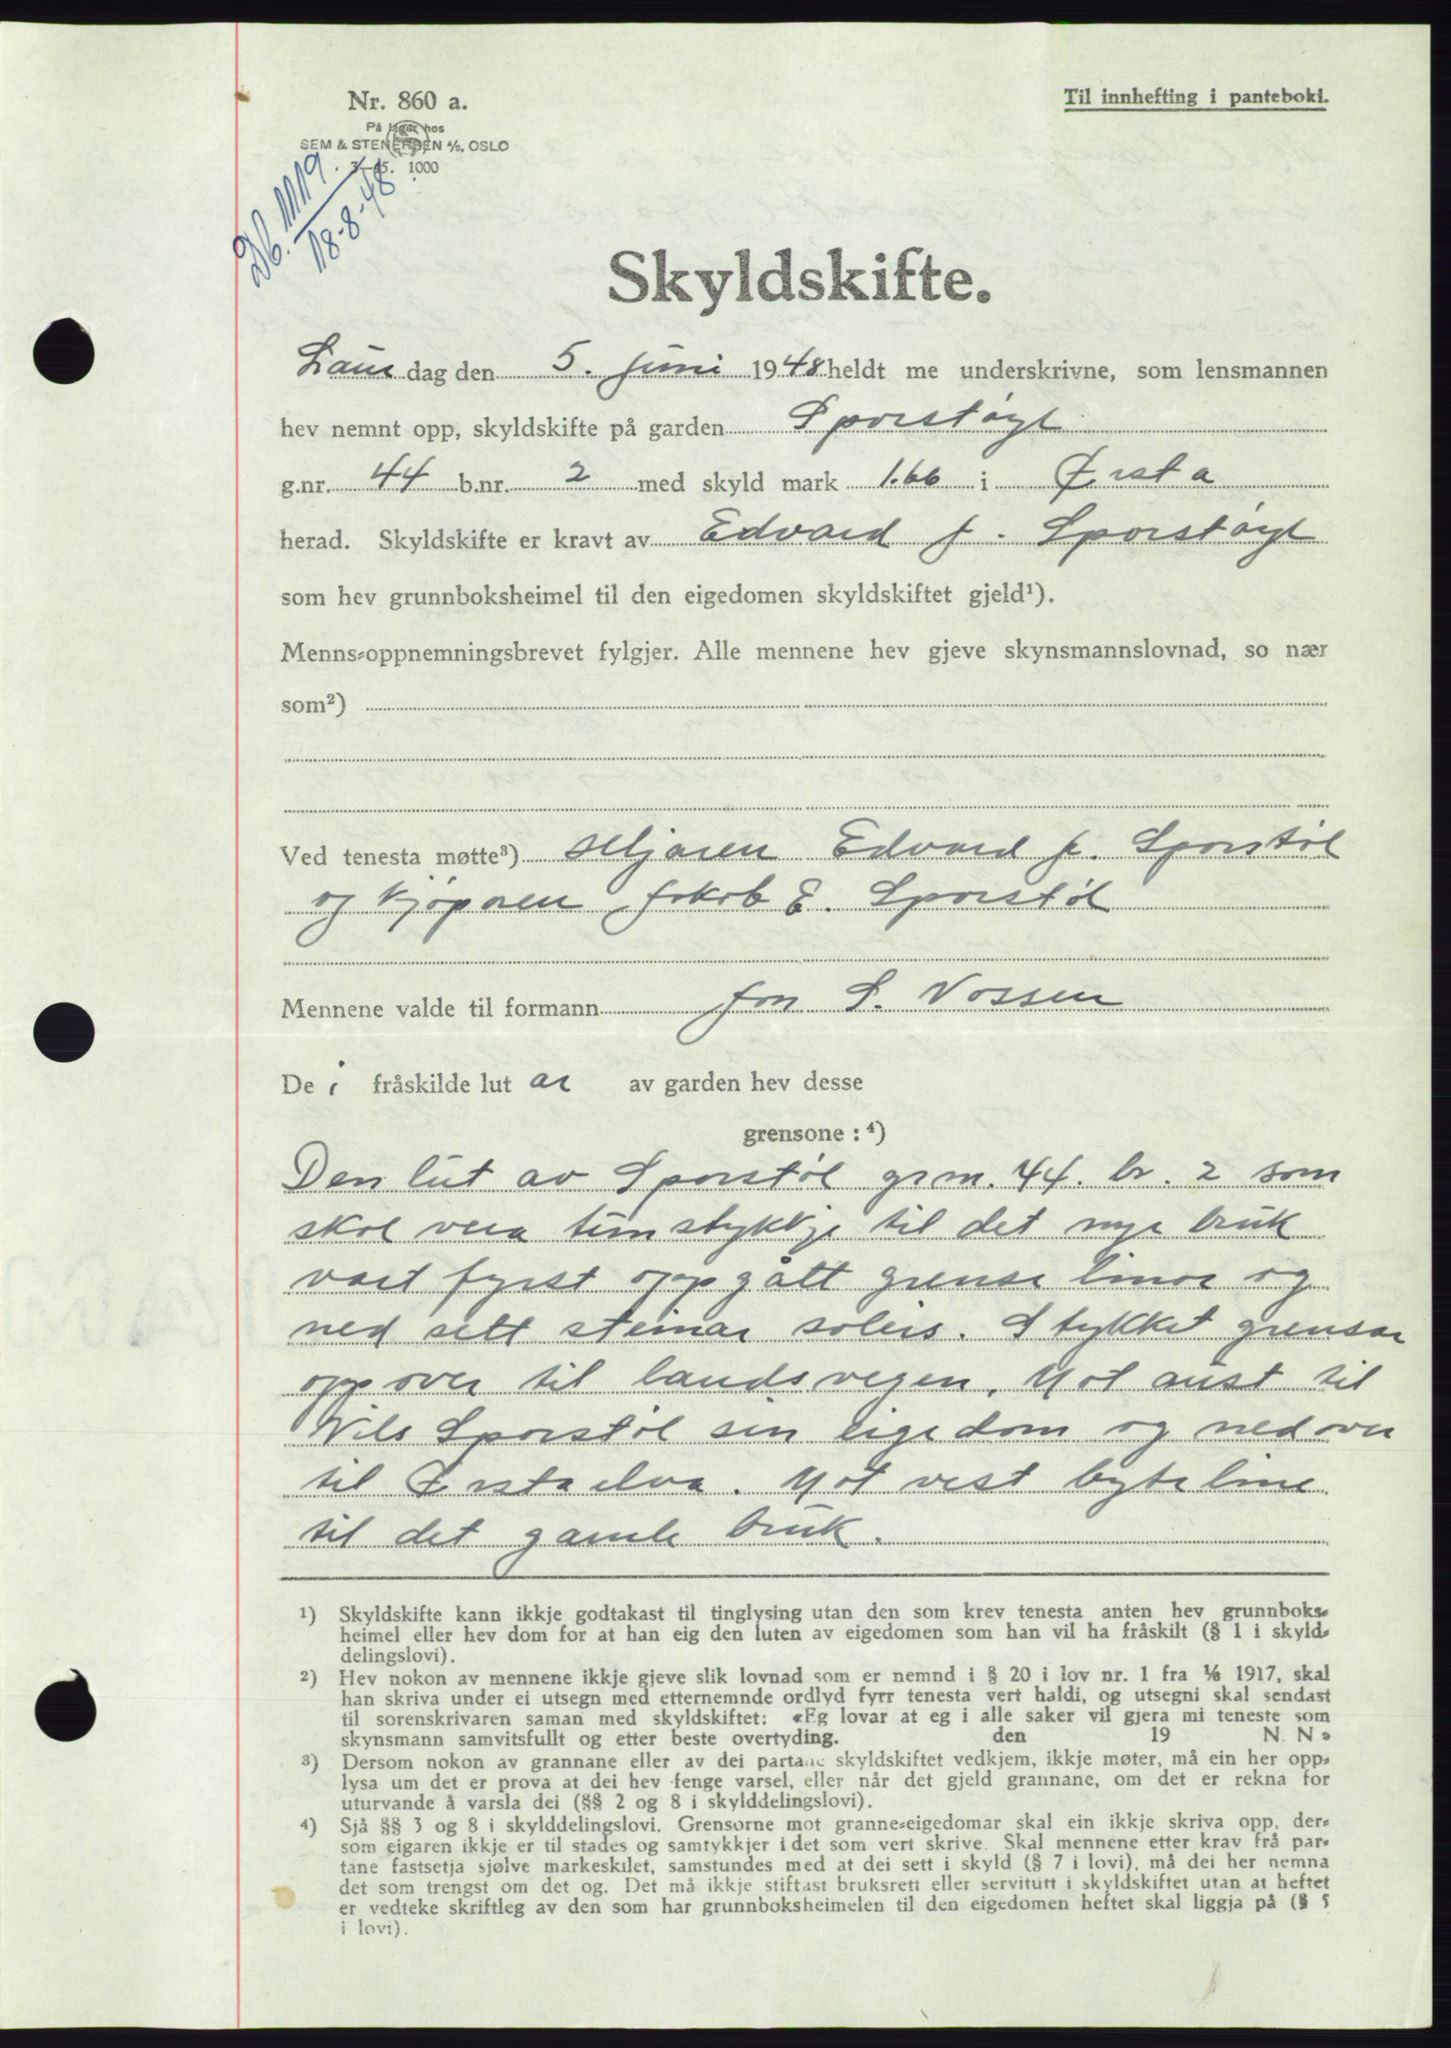 Nr. 860 a.
Til innhefting i panteboki.
På lager hos
SEM & STENERSEN A/S, OSLO
3—45. 1000
Db. 1119.
18-8-48
Skyldskifte.
Laur dag den 5. juni 1948 heldt me underskrivne, som lensmannen
hev nemnt opp, skyldskifte på garden Sporstøyl
g.nr. 44 b.nr. 2 med skyld mark 1.66 i Ørsta
herad. Skyldskifte er kravt av Edvard J. Sporstøyl
som hev grunnboksheimel til den eigedomen skyldskiftet gjeld¹).
Menns-oppnemningsbrevet fylgjer. Alle mennene hev gjeve skynsmannslovnad, so nær
som²)
Ved tenesta møtte³) seljaren Edvard J. Sporstøl
og kjøparen Jakob E. Sporstøl
Mennene valde til formann Jon S. Vossen
De i fråskilde lut ar av garden hev desse
grensone : ⁴)
Den lut av Sporstøl grm. 44. br. 2 som
skal vera tunstykkje til det nye bruk
vart fyrst oppgått grense linor og
ned sett steinar soleis. Stykket grensar
oppover til landsvegen. Mot aust til
Nils Sporstøl sin eigedom og nedover
til Ørstaelva. Mot vest byteline
til det gamle bruk.
¹) Skyldskifte kann ikkje godtakast til tinglysing utan den som krev tenesta anten hev grunnboks-
heimel eller hev dom for at han eig den luten av eigedomen som han vil ha fråskilt (§ 1 i skyld-
delingslovi).
²) Hev nokon av mennene ikkje gjeve slik lovnad som er nemnd i § 20 i lov nr. 1 fra 1/6 1917, skal
han skriva under ei utsegn med etternemnde ordlyd fyrr tenesta vert haldi, og utsegni skal sendast
til sorenskrivaren saman med skyldskiftet: «Eg lovar at eg i alle saker vil gjera mi teneste som
skynsmann samvitsfullt og etter beste overtyding. den 19 N. N.»
³) Dersom nokon av grannane eller av dei partane skyldskiftet vedkjem, ikkje møter, må ein her opp-
lysa um det er prova at dei hev fenge varsel, eller når det gjeld grannane, om det er rekna for
uturvande å varsla dei (§§ 2 og 8 i skylddelingslovi).
⁴) Sjå §§ 3 og 8 i skylddelingslovi. Grensorne mot granne-eigedomar skal ein ikkje skriva opp, der-
som eigaren ikkje er til stades og samtykkjer i det som vert skrive. Skal mennene etter krav frå par-
tane fastsetja sjølve markeskilet, samstundes med at dei sett i skyld (§ 7 i lovi), må dei her nemna
det som trengst om det og. Det må ikkje stiftast bruksrett eller servitutt i skyldskiftet utan at heftet
er vedteke skriftleg av den som har grunnboksheimelen til den eigedomen heftet skal liggja på (§ 5
i lovi).